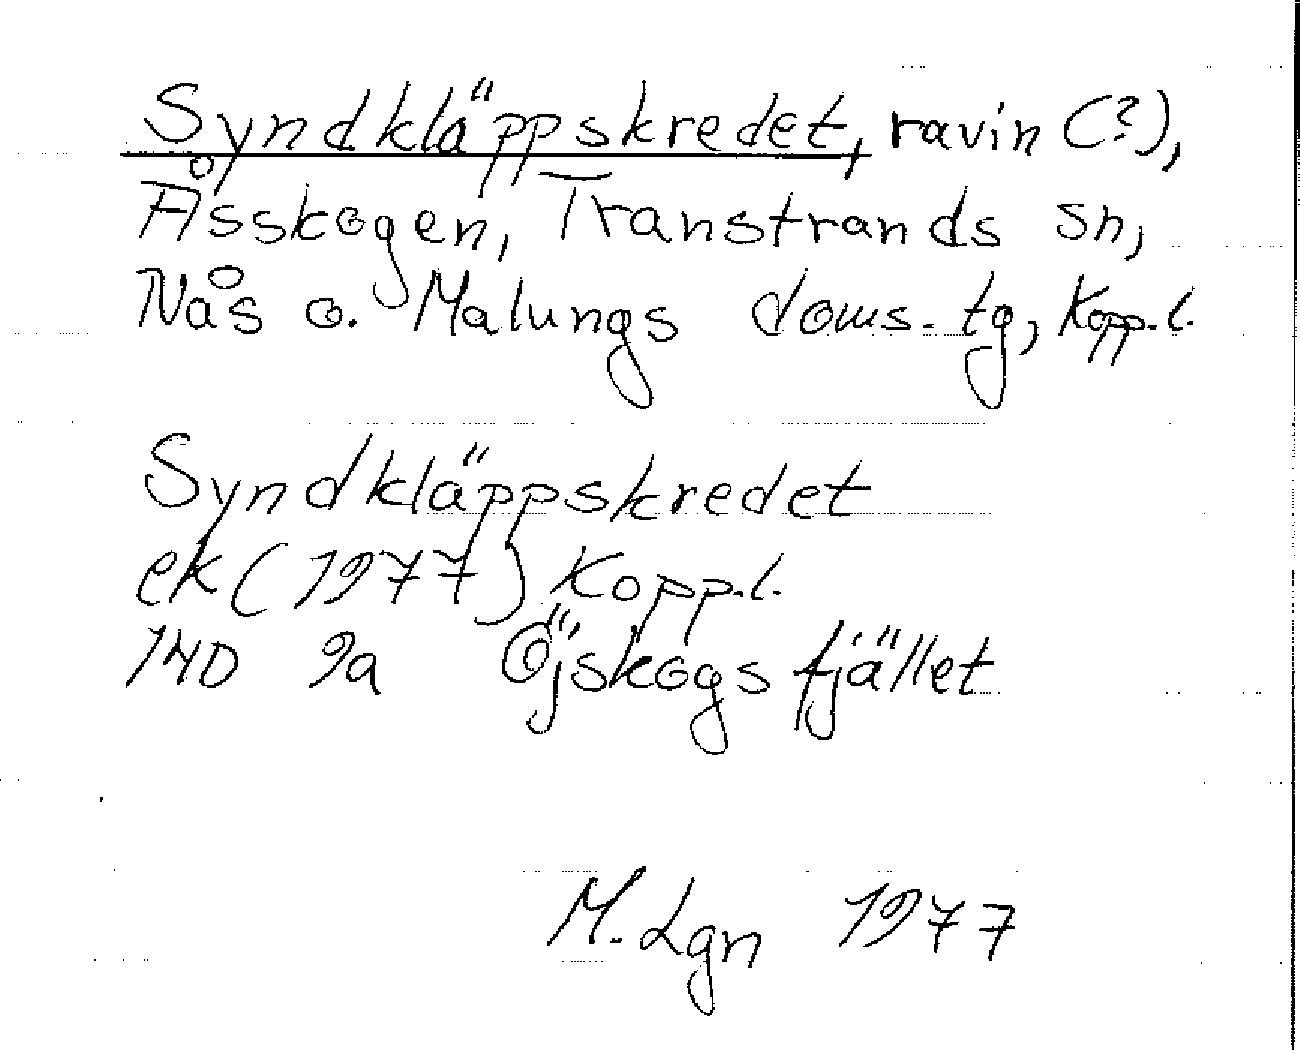 Syndkläppskredet, ravin (?),
Åsskogen, Transtrands sn,
Nås o. Malungs doms. tg, Kopp.l.
Syndkläppskredet
ek (1977) Kopp.l.
14D 9a Öjskogsfjället
M. Lgn 1977